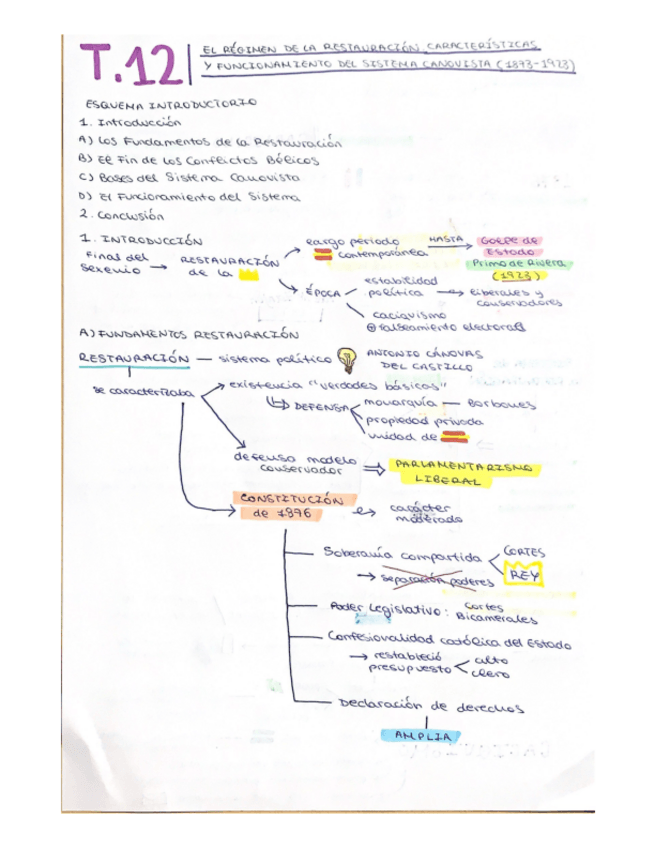 T.12 EL RÉGIMEN DE LA RESTAURACIÓN. CARACTERÍSTICAS
Y FUNCIONAMIENTO DEL SISTEMA CANOVISTA (1873-1923)
ESQUEMA INTRODUCTORIO
1. Introducción
A) Los Fundamentos de la Restauración
B) El Fin de los Conflictos Bélicos
C) Bases del Sistema Canovista
D) El Funcionamiento del Sistema
2. Conclusión
1. INTRODUCCIÓN
Final del
Sexenio → RESTAURACIÓN
de la
largo período
contemporánea
HASTA
Golpe de
Estado
Primo de Rivera
(1923)
ÉPOCA
estabilidad
política → liberales y
conservadores
caciquismo
falseamiento electoral
A) FUNDAMENTOS RESTAURACIÓN
RESTAURACIÓN — sistema político
ANTONIO CÁNOVAS
DEL CASTILLO
se caracterizaba
existencia "verdades básicas"
DEFENSA
monarquía — Borbones
propiedad privada
unidad de
defensa modelo
conservador ⇒ PARLAMENTARISMO
LIBERAL
CONSTITUCIÓN
de 1896
carácter
moderado
Soberanía compartida
CORTES
REY
→ separación poderes
Poder Legislativo: Cortes
Bicamerales
Confesionalidad católica del Estado
→ restableció
presupuesto
culto
clero
Declaración de derechos
AMPLIA